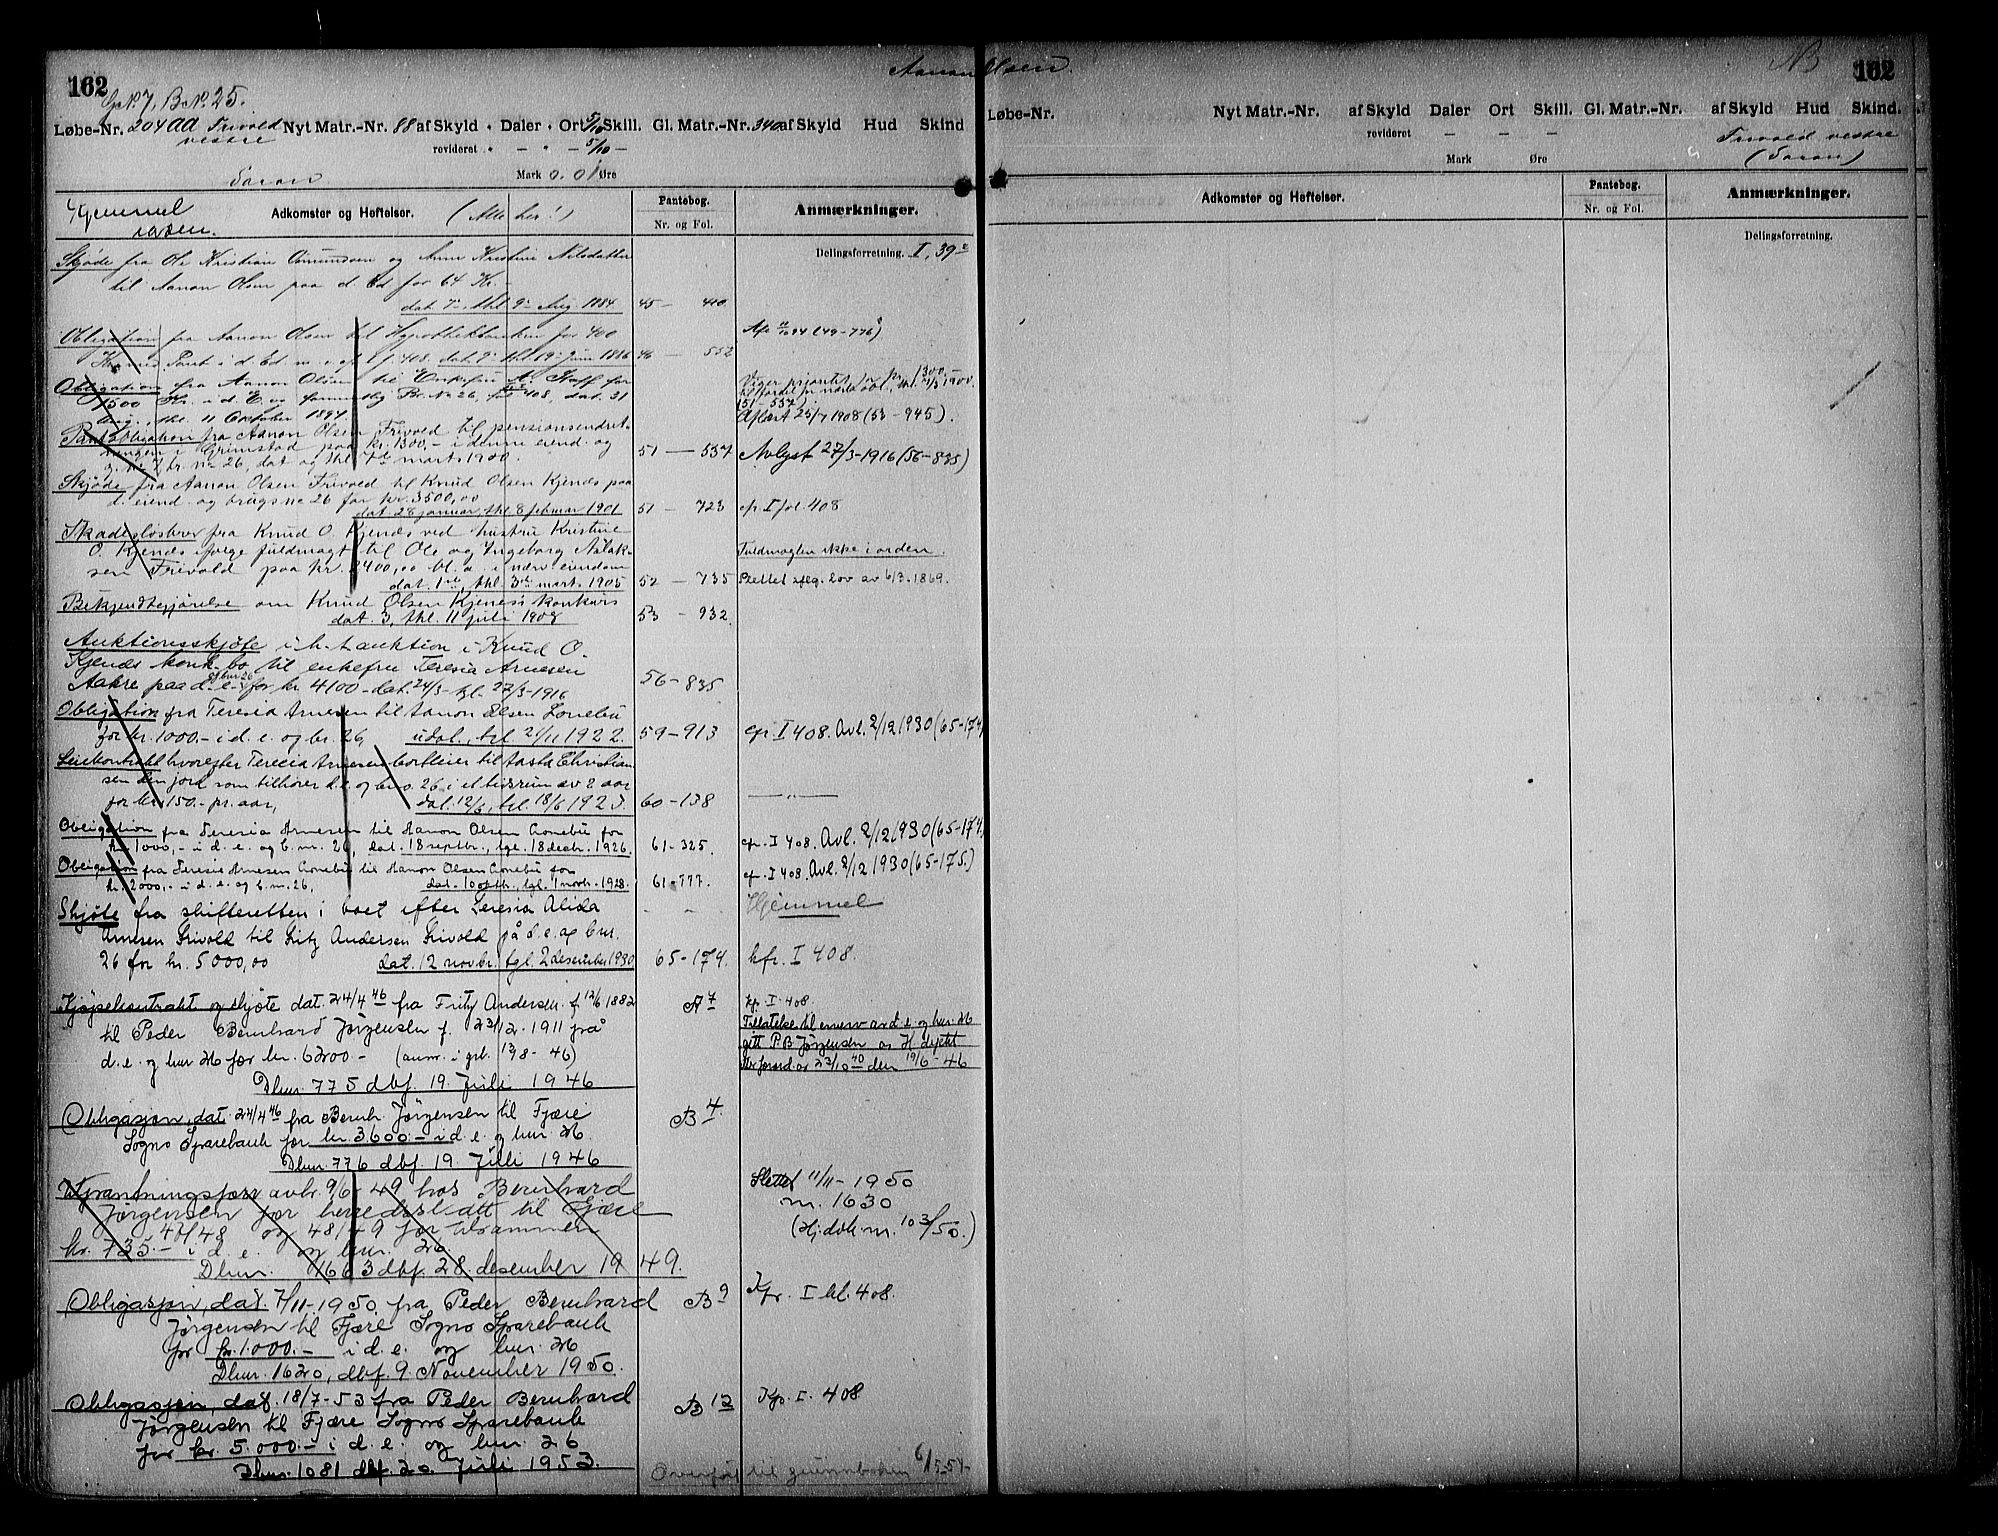 162
Aanon Olsen.
162
G.N. 7, B.N. 25.
Løbe-Nr. 204 ad Frivold vestre Nyt Matr.-Nr. 88 af Skyld " Daler " Ort 5/10 Skill. Gl. Matr.-Nr. 340 af Skyld Hud Skind
revideret " — " — 5/10 —
Mark 0. 01 Øre
Hjemmel
Adkomster og Heftelser. (Alle her!)
Pantebog.
Nr. og Fol.
Anmærkninger.
Delingsforretning. I, 39
Skjøde fra Ole Kristian Omundsen og Anne Kristine Nilsdatter
til Aanon Olsen paa d Ed for 64 Kr.
dat. 7', thl. 9' Aug 1884. 45 — 410
Obligation fra Aanon Olsen til Hypothekbanken for 400
Kr. med Pant i d. Ed. m. v. af f 408. dat. 7' thl. 19' Juni 1886 46 — 552
Obligation fra Aanon Olsen til Enkefru A. Staff for
1500 Kr. i d. E. og Br. No 26, fol 408, dat. 31
Aug., thl. 11 Oktober 1894.
Viger prioritet for kr. 1300,-
(51-557)
Aflæst 25/7 1908 (53-945).
Pantobligation fra Aanon Olsen Frivold til pensionsindret-
ningen i Grimstad paa kr. 1300,- i denne eiend. og
g. no 7 br. no 26, dat og thl 7de marts 1900. 51 — 557 Avlyst 27/3-1916 (56-835)
Skjøde fra Aanon Olsen Frivold til Knud Olsen Kjenes paa
d. eiend. og brugsno 26 for kr. 3500,00
dat. 28 januar, thl. 8 februar 1901 51 — 723 cfr. I fol. 408
Skadesløsbrev fra Knud O. Kjenes ved hustru Kristine
O. Kjenes ifølge fuldmagt til Ole og Ingeborg Nilsk-
sen Frivold paa kr. 2400,00 bl. a. i nærv eiendom
dat. 1ste, thl. 3de marts 1905 52 — 735
Fuldmagten ikke i orden.
Slettet iflg. lov av 6/3. 1869.
Bekjendtgjørelse om Knud Olsen Kjenes's konkurs
dat. 3, thl. 11 juli 1908 53 — 932.
Auktionsskjøte i h. t. auktion i Knud O.
Kjenes konk. bo til enkefru Teresia Arnesen
Aakre paa d. e. og bnr 26 for kr 4100 - dat. 24/3 - tgl. 27/3-1916 56-835
Obligation fra Teresia Arnesen til Aanon Olsen Lonebu
for kr. 1000,- i d. e. og br. 26, udat., tgl. 2/11 1922. 59-913 cfr. I 408. Avl. 2/12 1930 (65-174)
Leiekontrakt hvorefter Teresia Arnesen bortleier til Aasta Christian-
sen den jord som tilhører d. e. og br. no. 26 i et tidsrum av 2 aar
for kr. 150.- pr. aar, dat. 12/6, tgl. 18/6 1923. 60-138 — " —
Obligation fra Teresia Arnesen til Aanon Olsen Lonebu for
kr. 1000,- i d. e. og b. nr. 26, dat. 18 septbr., tgl. 18 decbr. 1926. 61-325. cfr. I 408. Avl. 2/12 1930 (65-174)
Obligation fra Teresia Arnesen Lonebu til Aanon Olsen Lonebu for
kr. 2000,- i d. e. og b. nr. 26, dat. 10 oktbr., tgl. 1 novbr. 1928. 61-777. cfr. I 408. Avl. 2/12 1930 (65-175.)
Skjøte fra skifteretten i boet efter Teresia Alida — " — Hjemmel
Arnesen Frivold til Fritz Andersen Frivold på d. e. og bnr.
26 for kr. 5000,00 dat. 12 novbr. tgl. 2 desember 1930 65-174. kfr. I 408.
Kjøpekontrakt og skjøte dat 24/4 46 fra Fritz Andersen f. 12/6 1882 A 7 kfr. I 408.
til Peder Bernhard Jørgensen f. 23/12-1911 på
d. e. og bnr 26 for kr. 6200- (anm. i grb. 198-46)
Dbnr. 775 dbf. 19. Juli 1946
Tillatelse til ennerv av d. e. og bnr. 26
gitt P. B Jørgensen av
forord. av 23/10 40 den 19/6-46
Obligasjon, dat. 24/4 46 fra Bernh. Jørgensen til Fjære B 4.
Sogns Sparebank for kr. 3.600.- i d. e. og bnr. 26.
Dbnr. 776 dbf. 19. Juli 1946
Utpantningsforr. avh. 9/6-49 hos Bernhard
Jørgensen for herredskatt til Fjære
47/48 og 48/49 for tilsammen
kr. 735.- i d. e. og bnr. 26.
Dbnr. 1663 dbf. 28. desember 1949.
Slettet 11/11-1950
nr. 1630
(Hj. dok nr. 103/50.)
Obligasjon, dat. 7/11-1950, fra Peder Bernhard B 9 Kfr. I bl. 408.
Jørgensen til Fjære Sogns Sparebank
for kr. 1.000.- i d. e. og bnr. 26
Dbnr. 1620, dbf. 9. November 1950.
Obligasjon, dat. 18/7-53 fra Peder Bernhard B 12 Kfr. I. 408
Jørgensen til Fjære Sogns Sparebank
for kr. 5.000.- i d. e. og bnr. 26
Dbnr. 1081 dbf. 20. Juli 1953.
Overført til grunnboken 6/1 5-54-
Løbe-Nr. Nyt Matr.-Nr. af Skyld Daler Ort Skill. Gl. Matr.-Nr. af Skyld Hud Skind.
revideret — — —
Mark Øre
Frivold vestre
Adkomster og Heftelser.
Pantebog.
Nr. og Fol.
Anmærkninger.
Delingsforretning.